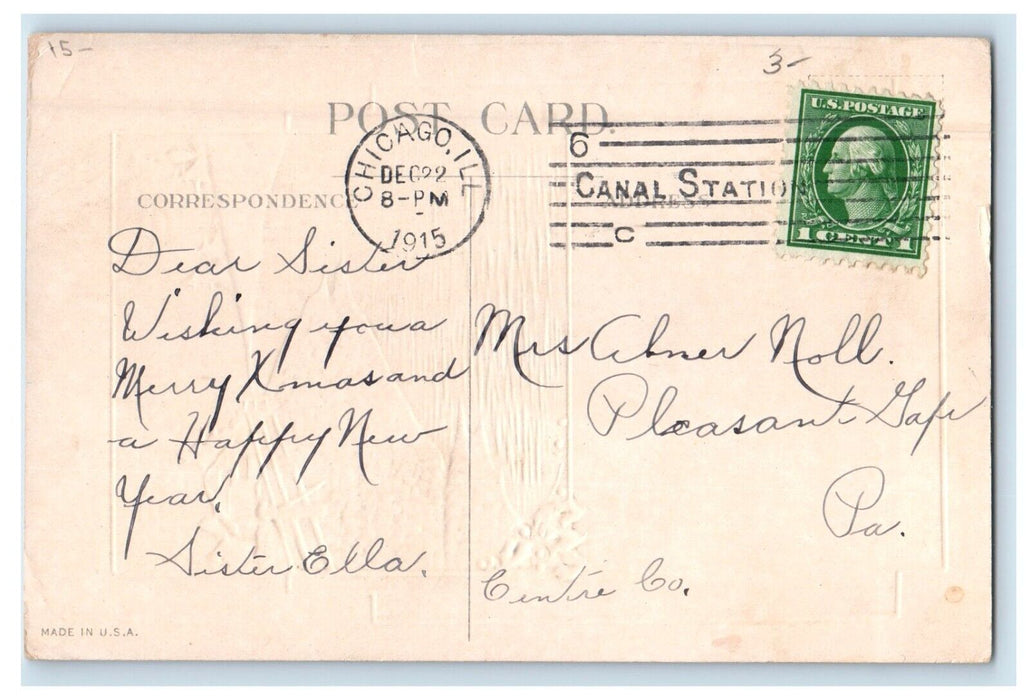 15-
3-
POST CARD.
U.S. POSTAGE
1 CENT 1
CHICAGO, ILL
DEC 22
8-PM
1915
6
CANAL STATION
C
CORRESPONDENCE
ADDRESS
Dear Sister
Wishing you a
Merry Xmas and
a Happy New
Year.
Sister Ella.
Mrs Abner Noll.
Pleasant Gap
Pa.
Centre Co.
MADE IN U.S.A.